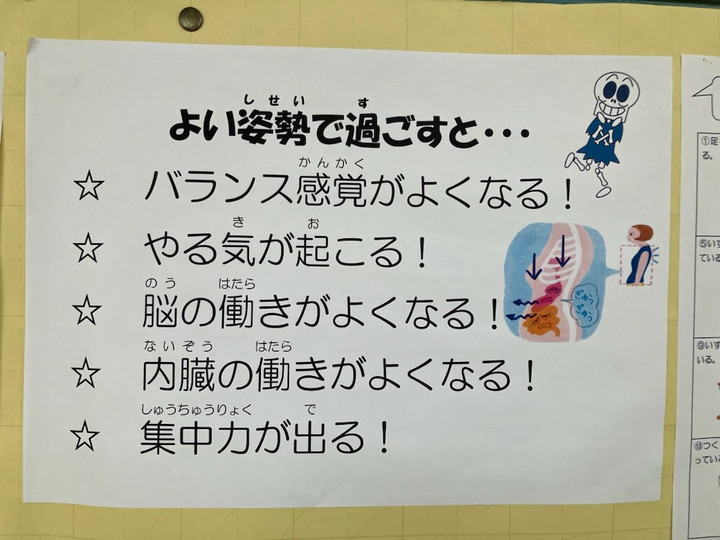 よい姿勢で過ごすと・・・
しせい す
☆ バランス感覚がよくなる！
かんかく
☆ やる気が起こる！
き お
☆ 脳の働きがよくなる！
のう はたら
☆ 内臓の働きがよくなる！
ないぞう はたら
☆ 集中力が出る！
しゅうちゅうりょく で
ぎゅう
ぎゅう
①足
る。
⑤いす
ている
⑨いす
いる。
⑬つく
っている